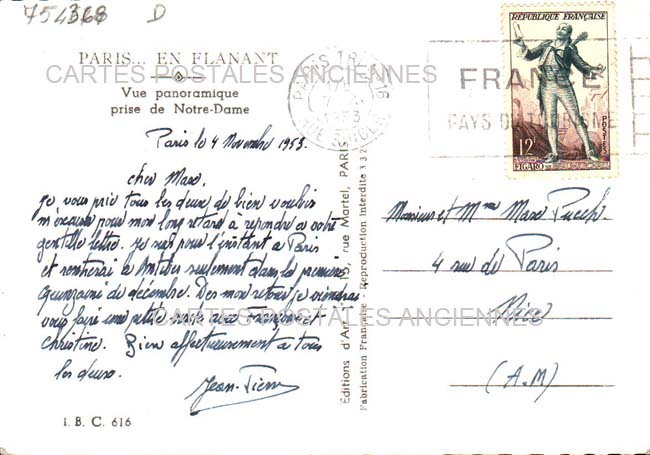 754368 D
PARIS... EN FLANANT
CARTES POSTALES ANCIENNES
Vue panoramique
prise de Notre-Dame
Paris le 4 Novembre 1953.
cher Max,
Je vous prie tous les deux de bien vouloir
m'excuser pour mon long retard à répondre à votre
gentille lettre. Je suis pour l'instant à Paris
et rentrerai à Antibes seulement dans la première
quinzaine de décembre. Dès mon retour je viendrai
vous faire une petite visite avec Françoise et
Christine. Bien affectueusement à tous
les deux.
Jean-Pierre
I. B. C. 616
Editions d'Art 15, rue Martel, PARIS
Fabrication Française Reproduction interdite
PARIS
1953
FRANCE
PAYS DU TOURISME
REPUBLIQUE FRANÇAISE
12F
POSTES
FIGARO
Monsieur et Mme Max Pucch.
4 rue de Paris
Nice
(A.M)
CARTES POSTALES ANCIENNES